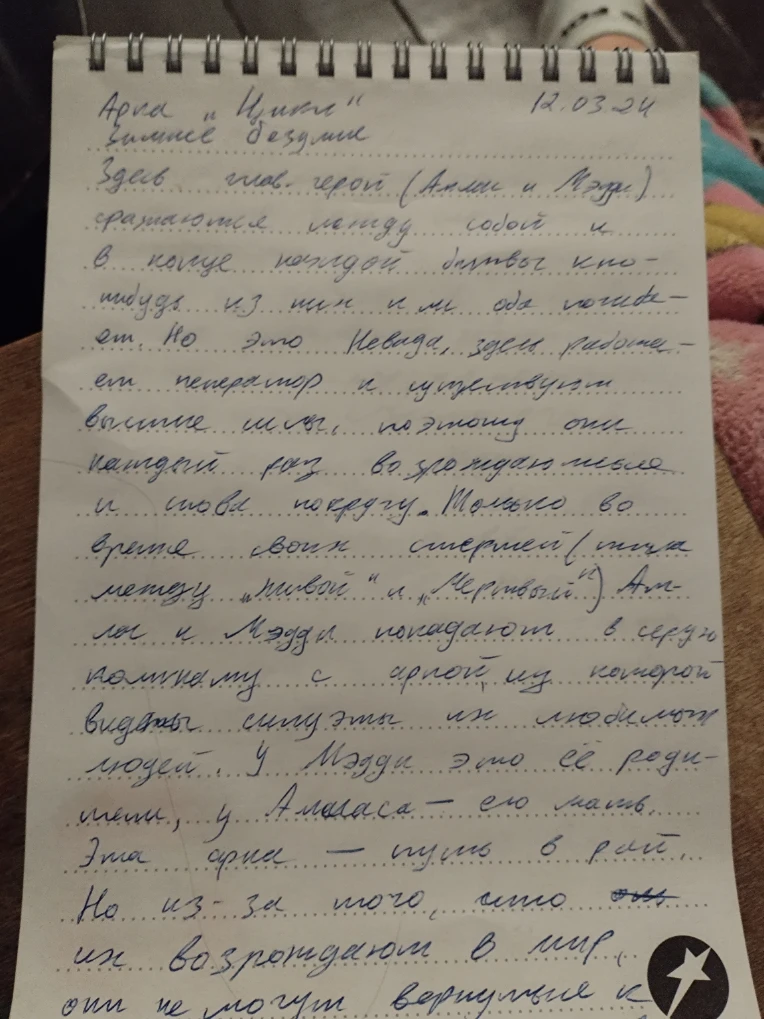 Арка „Цикл“ 12.03.24
Зимнее безумие
Здесь глав. герои (Атлас и Мэдди)
сражаются между собой и
в конце каждой битвы кто-
нибудь из них или оба погиба-
ет. Но это Невада, здесь работа-
ет и существуют
высшие силы, поэтому они
каждый раз возрождаются
и снова покругу. Только во
время своих смертей (типа
между „живой“ и „Мертвый“) Ат-
лас и Мэдди попадают в серую
комнату с аркой, из которой
видны силуэты их любимых
людей. У Мэдди это её роди-
тели, у Атласа — его мать.
Эта арка — путь в рай.
Но из-за того, что
их возрождают в мир,
они не могут вернуться к